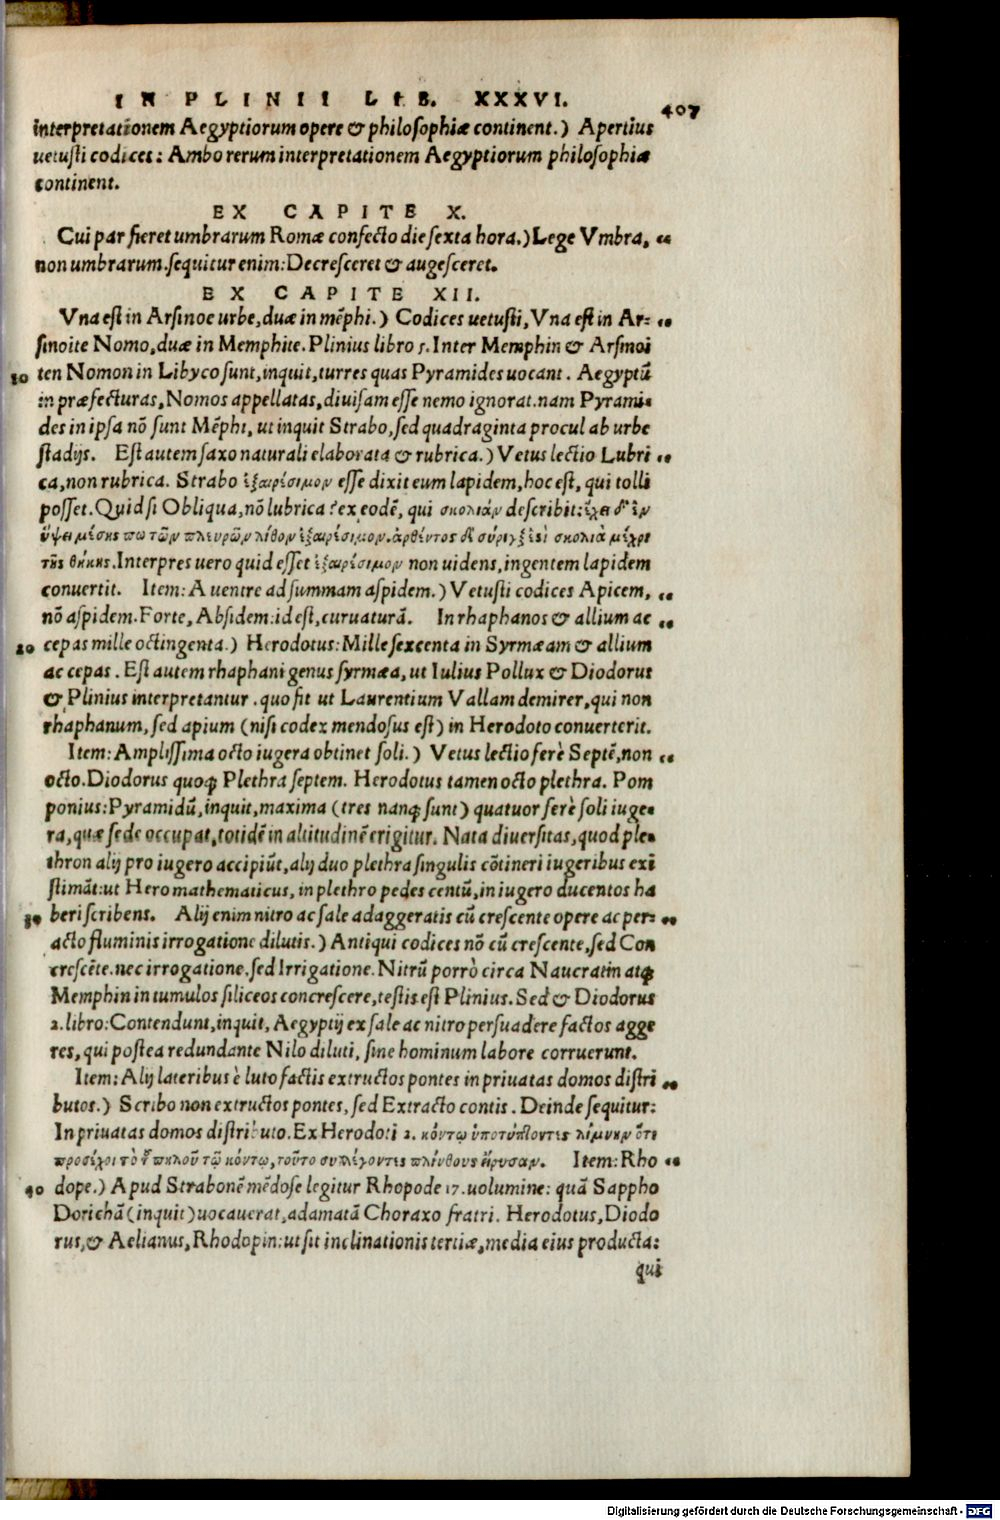 IN PLINII LIB. XXXVI. 407
interpretationem Aegyptiorum opere & philosophiæ continent.) Apertius
uetusti codices: Ambo rerum interpretationem Aegyptiorum philosophiæ
continent.
EX CAPITE X.
Cui par fieret umbrarum Romæ confecto die sexta hora.) Lege Vmbra, “
non umbrarum. sequitur enim: Decresceret & augesceret.
EX CAPITE XII.
Vna est in Arsinoe urbe, duæ in mēphi.) Codices uetusti, Vna est in Ar= “
sinoite Nomo, duæ in Memphite. Plinius libro 5. Inter Memphin & Arsinoi
10 ten Nomon in Libyco sunt, inquit, turres quas Pyramides uocant. Aegyptū
in præfecturas, Nomos appellatas, diuisam esse nemo ignorat. nam Pyrami=
des in ipsa nō sunt Mēphi, ut inquit Strabo, sed quadraginta procul ab urbe
stadijs. Est autem saxo naturali elaborata & rubrica.) Vetus lectio Lubri “
ca, non rubrica. Strabo ἐξαιρέσιμον esse dixit eum lapidem, hoc est, qui tolli
posset. Quid si Obliqua, nō lubrica? ex eodē, qui σκολιὰν describit: ἔχει δ' ἐν
ὕψει μέσης πω τῶν πλευρῶν λίθον ἐξαιρέσιμον. ἀρθέντος δὲ σύριγξ ἐστὶ σκολιὰ μέχρι
τῆς θήκης. Interpres uero quid esset ἐξαιρέσιμον non uidens, ingentem lapidem
conuertit. Item: A uentre ad summam aspidem.) Vetusti codices Apicem, “
nō aspidem. Forte, Absidem: id est, curuaturā. In rhaphanos & allium ac “
20 cepas mille octingenta.) Herodotus: Mille sexcenta in Syrmæam & allium
ac cepas. Est autem rhaphani genus syrmæa, ut Iulius Pollux & Diodorus
& Plinius interpretantur. quo fit ut Laurentium Vallam demirer, qui non
rhaphanum, sed apium (nisi codex mendosus est) in Herodoto conuerterit.
Item: Amplissima octo iugera obtinet soli.) Vetus lectio ferè Septē, non “
octo. Diodorus quoq; Plethra septem. Herodotus tamen octo plethra. Pom
ponius: Pyramidū, inquit, maxima (tres nanq; sunt) quatuor ferè soli iuge=
ra, quæ sede occupat, totidē in altitudinē erigitur. Nata diuersitas, quod ple=
thron alij pro iugero accipiūt, alij duo plethra singulis cōtineri iugeribus exi
stimāt: ut Hero mathematicus, in plethro pedes centū, in iugero ducentos ha
30 beri scribens. Alij enim nitro ac sale adaggeratis cū crescente opere ac per= “
acto fluminis irrogatione dilutis.) Antiqui codices nō cū crescente, sed Con
crescēte. nec irrogatione. sed Irrigatione. Nitrū porrò circa Naucratin atq;
Memphin in tumulos siliceos concrescere, testis est Plinius. Sed & Diodorus
2. libro: Contendunt, inquit, Aegyptij ex sale ac nitro persuadere factos agge
res, qui postea redundante Nilo diluti, sine hominum labore corruerunt.
Item: Alij lateribus è luto factis extructos pontes in priuatas domos distri “
butos.) Scribo non extructos pontes, sed Extracto contis. Deinde sequitur:
In priuatas domos distributo. Ex Herodoti 2. κόντῳ ὑποτύπτοντες λίμνην ὅτι
προσέχοι τὸ τοῦ πηλοῦ τῷ κόντῳ, τοῦτο συλλέγοντες πλίνθους ἤρυσαν. Item: Rho “
40 dope.) Apud Strabonē mēdose legitur Rhopode 17. uolumine: quā Sappho
Dorichā (inquit) uocauerat, adamatā Choraxo fratri. Herodotus, Diodo
rus, & Aelianus, Rhodopin: ut sit inclinationis tertiæ, media eius producta:
qui
Digitalisierung gefördert durch die Deutsche Forschungsgemeinschaft - DFG